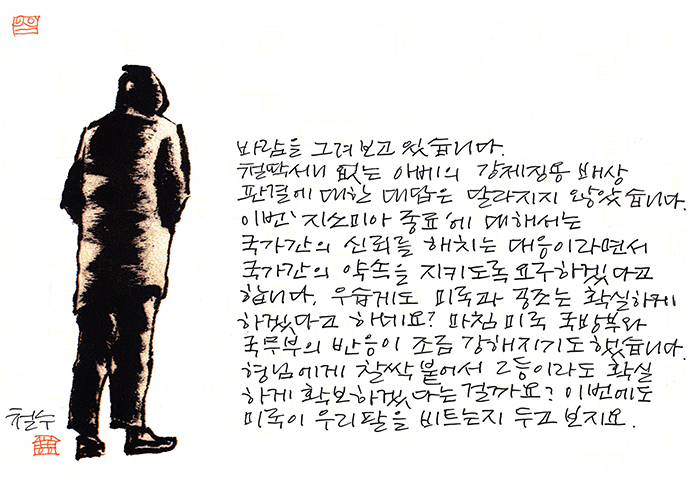 바람을 그려보고 있습니다.
철딱서니 없는 아베의 강제징용 배상
판결에 대한 대답은 달라지지 않았습니다.
이번 '지소미아 종료'에 대해서는
국가간의 신뢰를 해치는 대응이라면서
국가간의 약속을 지키도록 요구하겠다고
합니다. 우습게도 미국과 공조는 확실하게
하겠다고 하네요? 마침 미국 국방부와
국무부의 반응이 조금 강해지기도 했습니다.
형님에게 찰싹 붙어서 2등이라도 확실
하게 확보하겠다는 걸까요? 이번에도
미국이 우리팔을 비트는지 두고 보지요.
철수